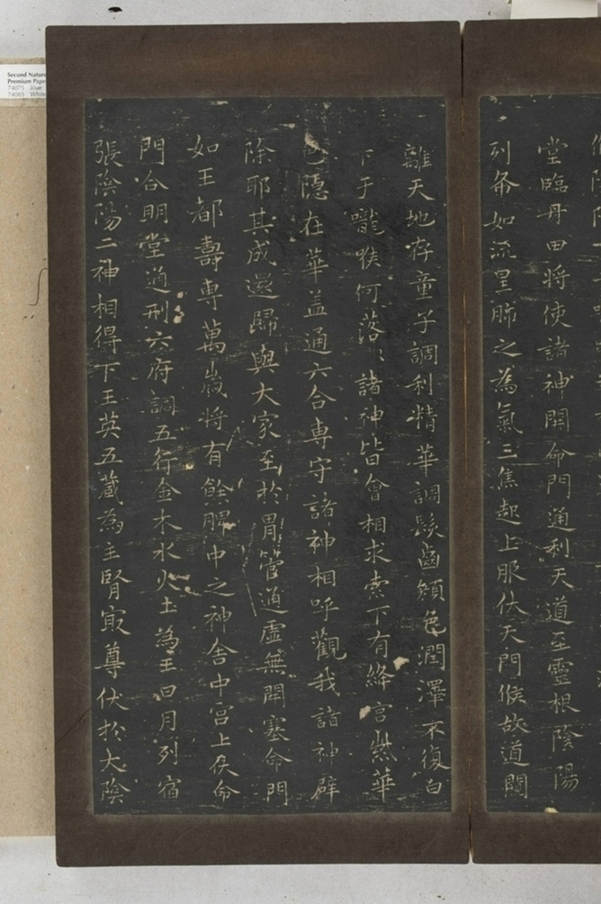 堂臨丹田將使諸神開命門通利天道至靈根陰陽
列布如流星肺之為氣三焦起上服伏天門候故道闚
離天地存童子調利精華調髮齒顏色潤澤不復白
下于嚨喉何落〻諸神皆會相求索下有絳宮紫華
色隱在華蓋通六合專守諸神相呼觀我諸神辟
除耶其成還歸與大家至於胃管通虛無閉塞命門
如玉都壽專萬歲將有餘脾中之神舍中宮上伏命
門合明堂通利六府調五行金木水火土為王日月列宿
張陰陽二神相得下玉英五藏為主腎㝡尊伏於大陰
Second Nature
Premium Pape
74075 Blue
74085 White